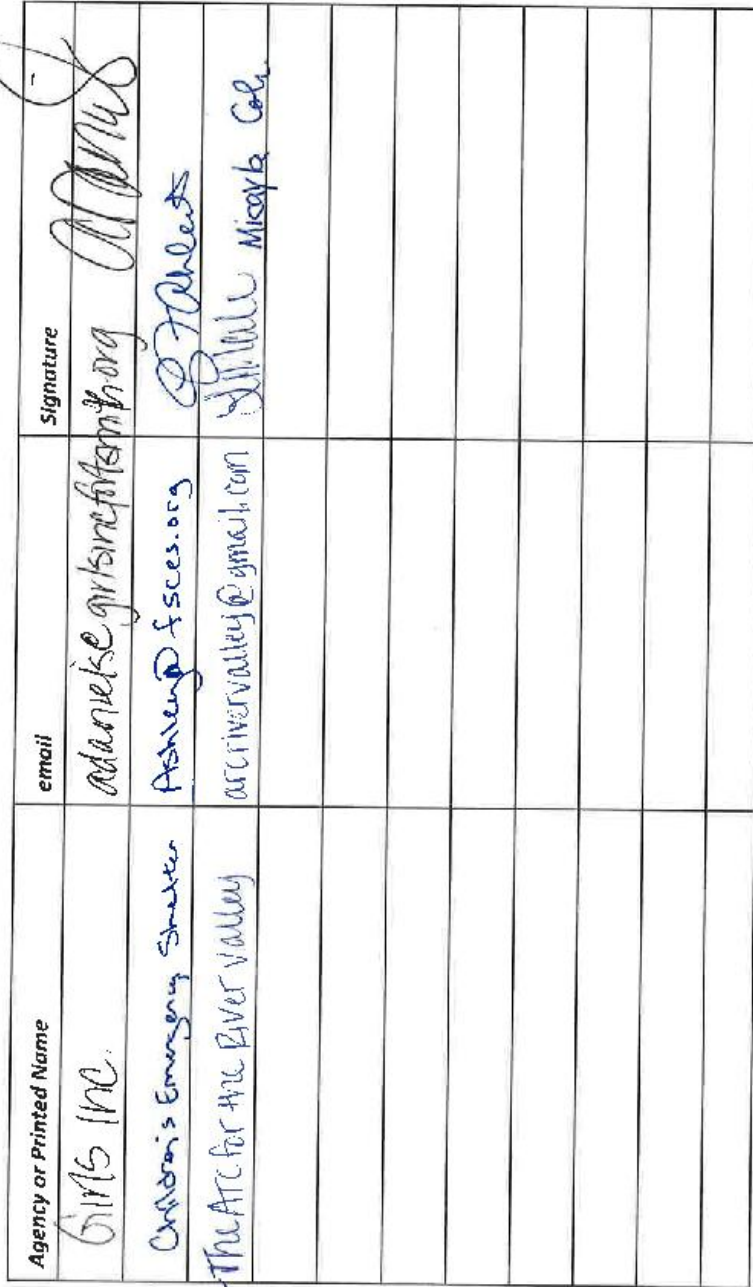 Agency or Printed Name email Signature
Girls Inc. adaniels@girlsincfortsmith.org
Children's Emergency Shelter Ashley@fsces.org
The Arc for the River Valley arcrivervalley@gmail.com Mikayla